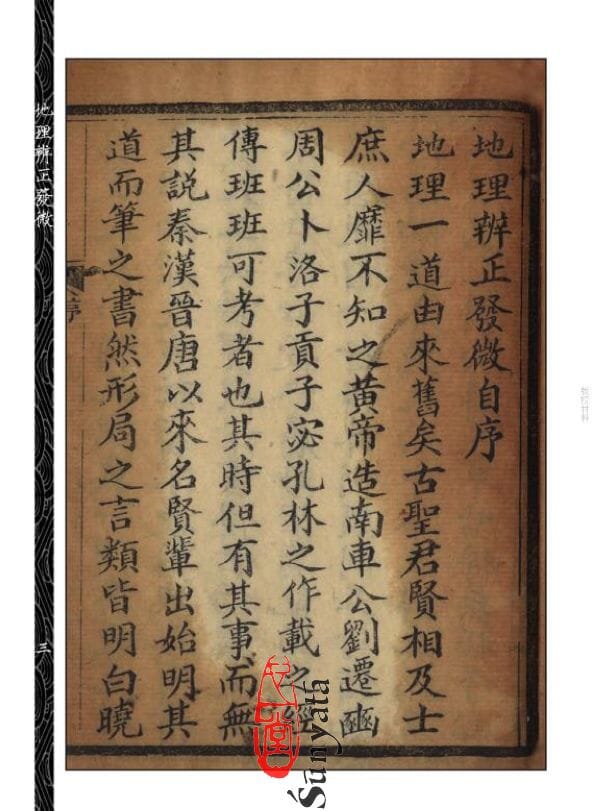 地理辨正發微自序
地理一道由來舊矣古聖君賢相及士
庶人靡不知之黃帝造南車公劉遷豳
周公卜洛子貢子宓孔林之作載之經
傳班班可考者也其時但有其事而無
其說秦漢晉唐以來名賢輩出始明其
道而筆之書然形局之言類皆明白曉
序
地理辨正發微
三
心一堂
Śūnyatā